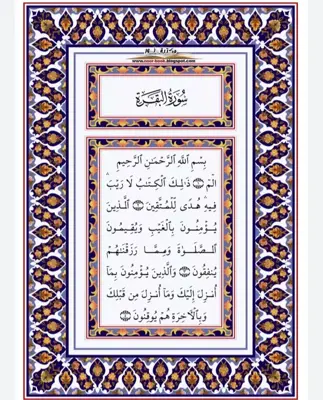 www.noor-book.blogspot.com
سُورَةُ البَقَرَة
بِسْمِ اللَّهِ الرَّحْمَٰنِ الرَّحِيمِ
الٓمٓ ۝ ذَٰلِكَ الْكِتَٰبُ لَا رَيْبَ ۛ
فِيهِ ۛ هُدًى لِّلْمُتَّقِينَ ۝ الَّذِينَ
يُؤْمِنُونَ بِالْغَيْبِ وَيُقِيمُونَ
الصَّلَوٰةَ وَمِمَّا رَزَقْنَٰهُمْ
يُنفِقُونَ ۝ وَالَّذِينَ يُؤْمِنُونَ بِمَا
أُنزِلَ إِلَيْكَ وَمَا أُنزِلَ مِن قَبْلِكَ
وَبِالْءَاخِرَةِ هُمْ يُوقِنُونَ ۝